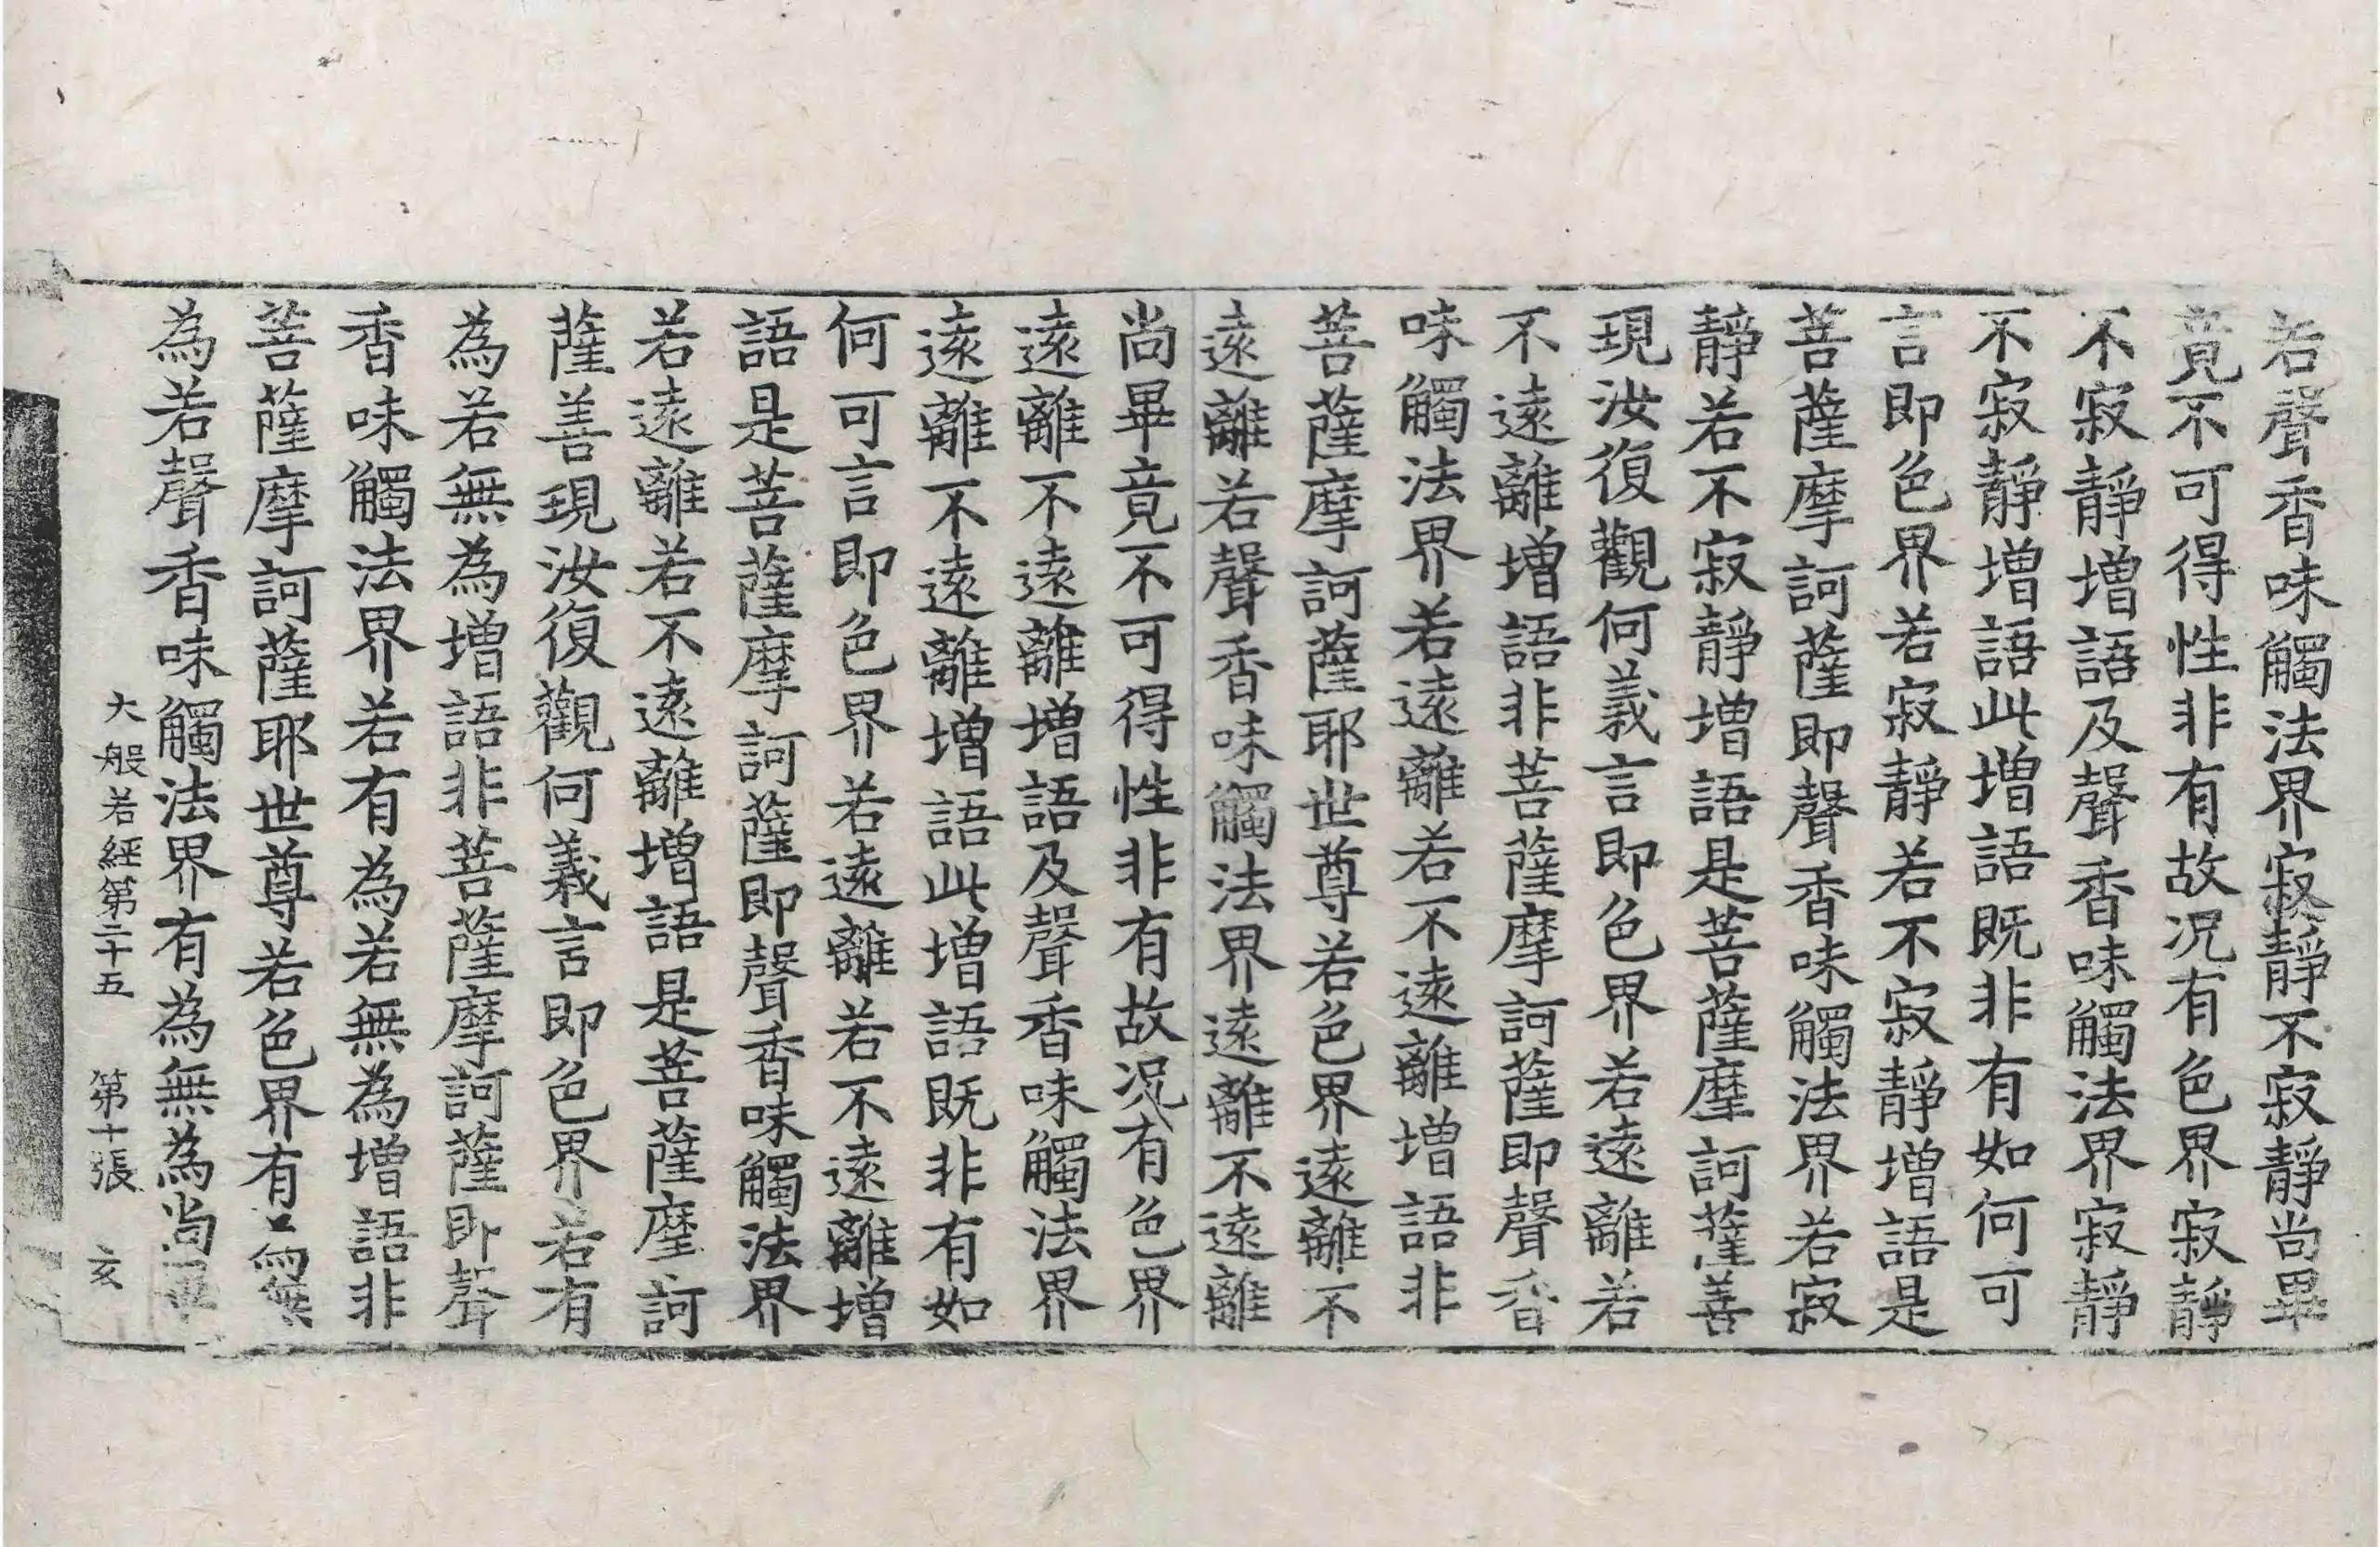 若聲香味觸法界寂靜不寂靜尚畢
竟不可得性非有故况有色界寂靜
不寂靜增語及聲香味觸法界寂靜
不寂靜增語此增語既非有如何可
言即色界若寂靜若不寂靜增語是
菩薩摩訶薩即聲香味觸法界若寂
靜若不寂靜增語是菩薩摩訶薩善
現汝復觀何義言即色界若遠離若
不遠離增語非菩薩摩訶薩即聲香
味觸法界若遠離若不遠離增語非
菩薩摩訶薩耶世尊若色界遠離不
遠離若聲香味觸法界遠離不遠離
尚畢竟不可得性非有故况有色界
遠離不遠離增語及聲香味觸法界
遠離不遠離增語此增語既非有如
何可言即色界若遠離若不遠離增
語是菩薩摩訶薩即聲香味觸法界
若遠離若不遠離增語是菩薩摩訶
薩善現汝復觀何義言即色界若有
為若無為增語非菩薩摩訶薩即聲
香味觸法界若有為若無為增語非
菩薩摩訶薩耶世尊若色界有為無
為若聲香味觸法界有為無為尚畢
大般若經第二十五 第十張 亥